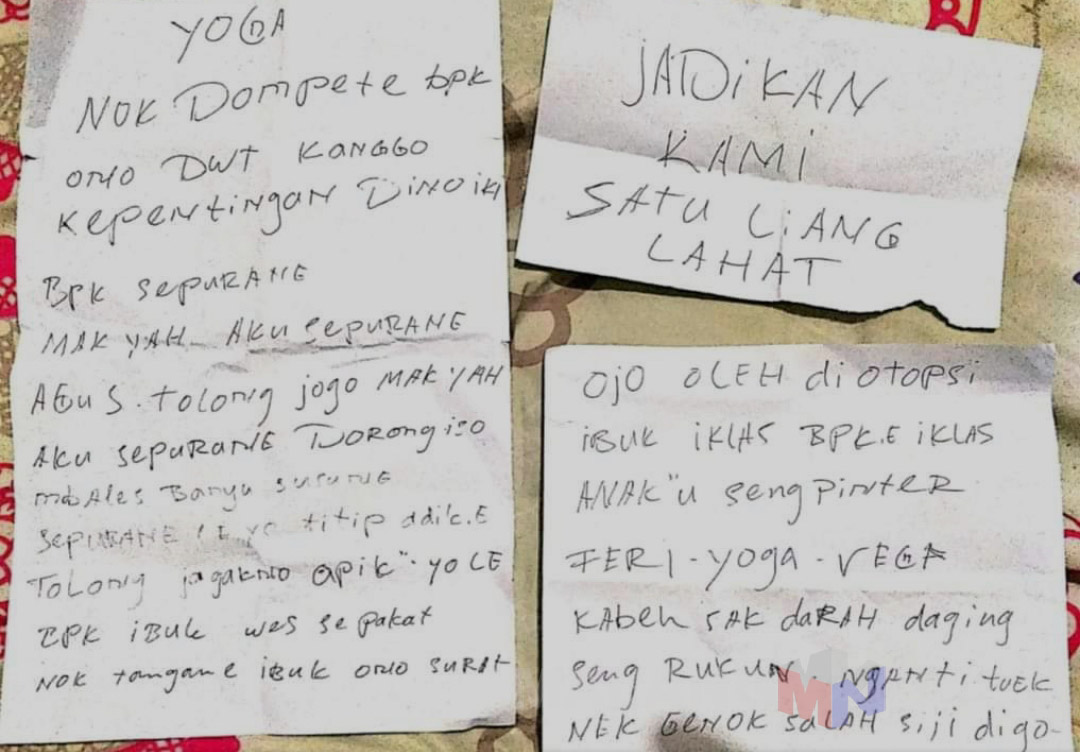 YOGA
NOK Dompete bpk
ONO DWT KANGGO
KepeNtingan DiNO iKi
Bpk sepuRANE
MAK YAH AKU sepuRANE
AGUS. tolong jogo MAK YAH
AKU sepuRANE DoRong iso
mbAles Banyu susuNE
sepuRANE titip adik.E
ToLong jagakNo apik" yo LE
BPK iBUk wes sepakat
NOK tangane iBuk ONO suRAt
JADiKAN
KAMi
SATU LiANG
LAHAT
Ojo OLEH di otopsi
iBUK iKLAS BPK.E iKLAS
ANAK"u seng PiNtER
FERI - yoga - VEGA
KABeh SAK daRAH daging
seng RUKUN. NgANti tuEK
NEK GENOK SALAH siji digo-
MN